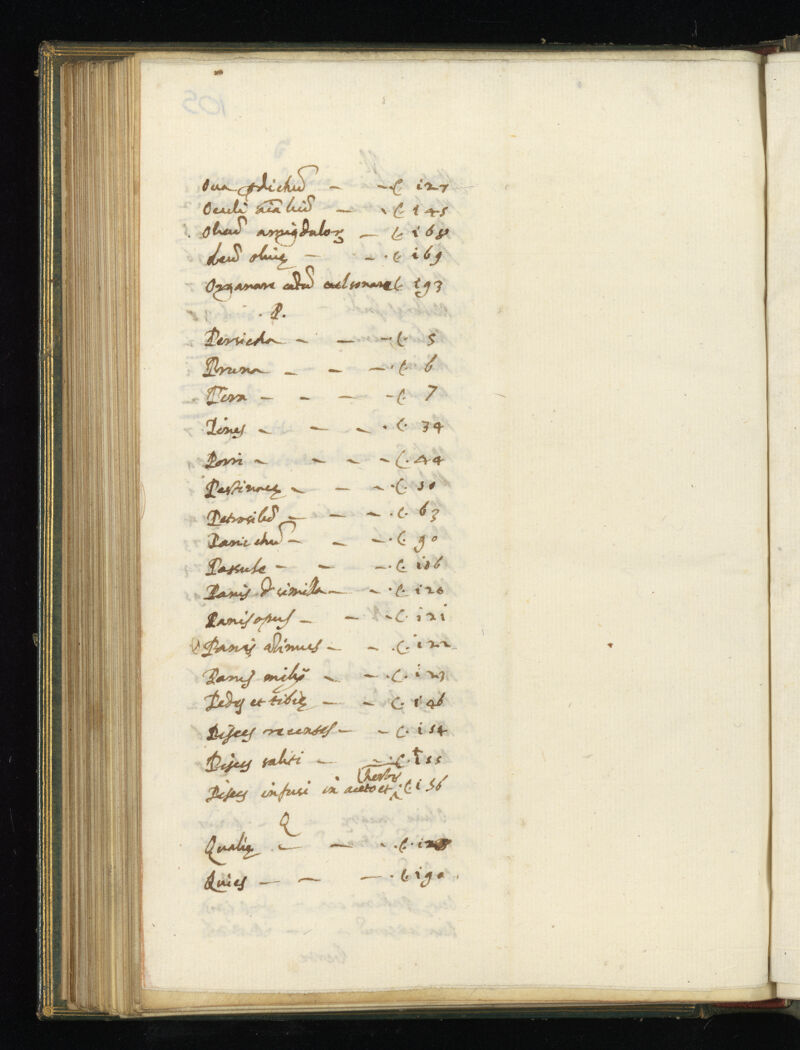 Ova – – c. 127
Oculi aīaliū – . c. 145
. Oleū amigdaloꝝ – c. 168
oleū olivę – – . c. 169
Organare c. 193
. P.
Persicha – – – . c. 5
Pruna – – – . c. 6
Pira – – – – c. 7
Pines – – – . c. 34
Porri – – – – c. 44
Pastinacę – – – . c. 50
Petrosilū – – – . c. 63
Panichū – – – . c. 90
Passule – – – . c. 106
Panis d simila – – c. 120
Panis opus – – . c. 121
Panis azimus – – . c. 122
Panis milij – – . c. 123
Pedes et tibię – – c. 146
Pisces recentes – – c. 154
Pisces saliti – – . c. 155
Pisces infusi in aceto et herbis . c. 156
Q
Qualię . – – . c. 128
Quies – – – . c. 190